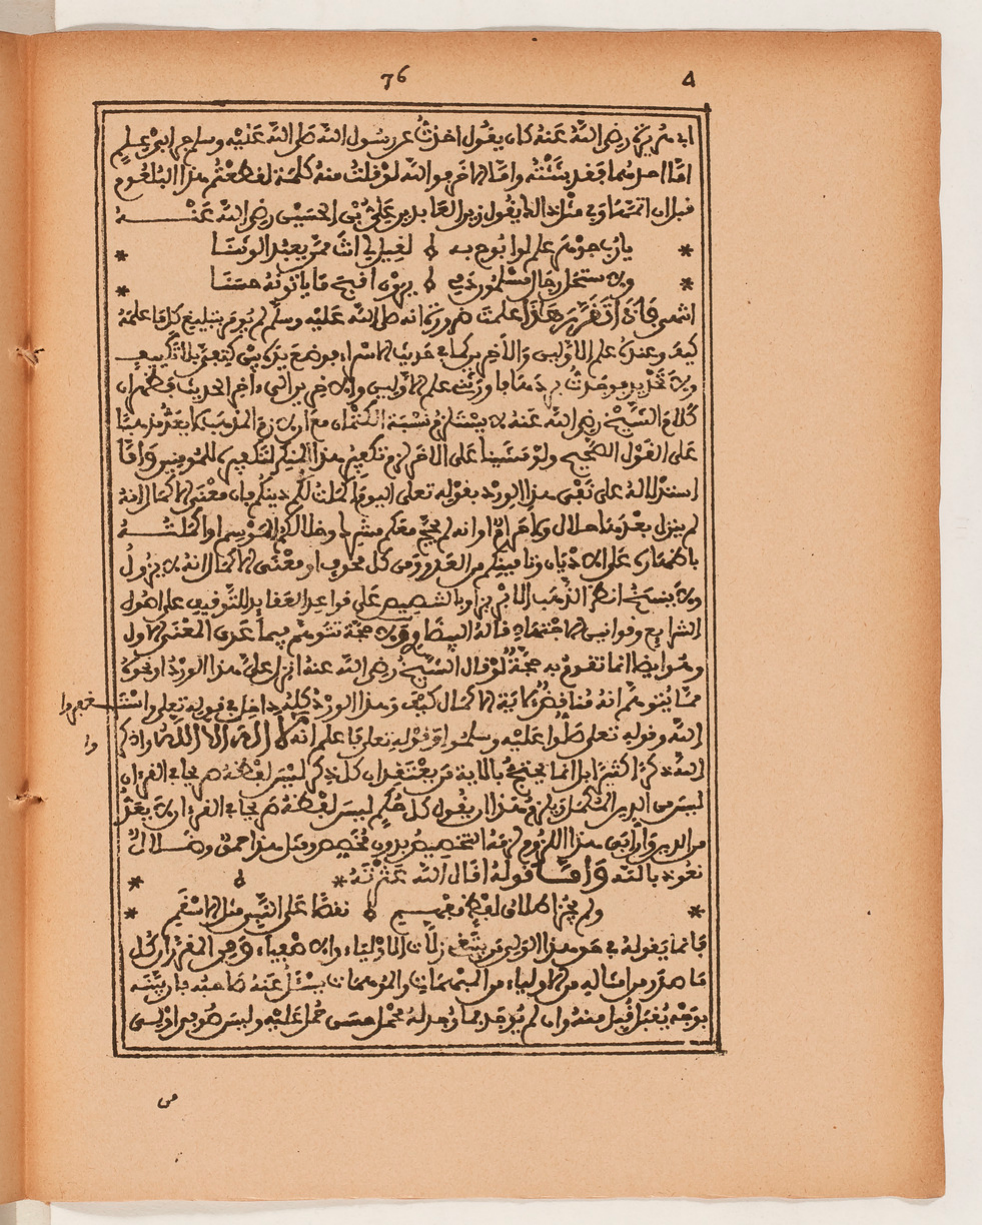 76 4
ابي هريرة رضي الله عنه كان يقول اخذت عن رسول الله صلى الله عليه وسلم جرابي علم
اما احدهما فقد بثثته واما الاخر فوالله لو قلت منه كلمة لقطعتم هذا البلعوم
قبل ان اتمها وفي مثل ذلك يقول زين العابدين علي بن الحسين رضي الله عنه
يا رب جوهر علم لو ابوح به لقيل لي انت ممن يعبد الوثنا
ولاستحل رجال مسلمون دمي يرون اقبح ما ياتونه حسنا
انتهى فاذا تقرر هذا علمت ضرورة انه صلى الله عليه وسلم لم يومر بتبليغ كل ما علمه
كيف وعنده علم الاولين والاخرين كما في حديث الاسراء فوضع يده بين كتفي بلا تكييف
ولا تحديد فوجدت بردها فاورثني علم الاولين والاخرين الى ءاخر الحديث فظهر ان
كلام الشيخ رضي الله عنه لا يستلزم نسبة الكتمان مع ان لازم المذهب لا يعد مذهبا
على القول الصحيح ولو مشينا على الاخر لزم تكفير هذا المنكر لتكفيره للمومنين واما
استدلاله على نفي هذا الورد بقوله تعلى اليوم اكملت لكم دينكم فان معنى الاكمال انه
لم ينزل بعدها حلال ولا حرام او انه لم يحج معكم مشرك وخلا لكم الموسم او اكملته
باظهاره على الاديان وتامينكم من العدو ومن كل مخوف او معنى الاكمال انه لا يزول
ولا ينسخ انظر الذهب الابريز او بالتنصيص على قواعد العقايد والتوفيق على اصول
الشرايع وقوانين الاجتهاد قاله البيضاوي ولا حجة تتوهم فيما عدى المعنى الاول
وهو ايضا انما تقوم به حجة لو قال الشيخ رضي الله عنه انزل علي هذا الورد او نحوه
مما يتوهم انه مناقض لاية الاكمال كيف وهذا الورد كله داخل في قوله تعلى واستغفروا
الله وقوله تعلى صلوا عليه وسلموا وقوله تعلى فاعلم انه لا اله الا الله واذكروا
الله ذكرا كثيرا بل انما يحتج بالاية من يعتقد ان كل ذكر ليس لفظه صريحا في القرءان
ليس من الدين المكمل ويلزم هذا ان يقول كل حكم ليس لفظه صريحا في القرءان لا يعد
من الدين وان ابى هذا اللزوم لزمه التخصيص بدون مخصص ومثل هذا حمق وضلال
نعوذ بالله واما قوله اقال الله عثرته
ولم يجز اطلاق لفظ نفضا على النبي مثل الاسقم
فانما يقوله في هو هذا الولي من يتبع زلات الاولياء والاصفياء وهي المغزار كل
ما صدر من امثاله من الاولياء من المبهمات والموهمات يسئل عنه صاحبه فان بينه
بوجه يقبل قبل منه وان لم يوجد هما وجد له محمل حسن حمل عليه وليس هو باول
من